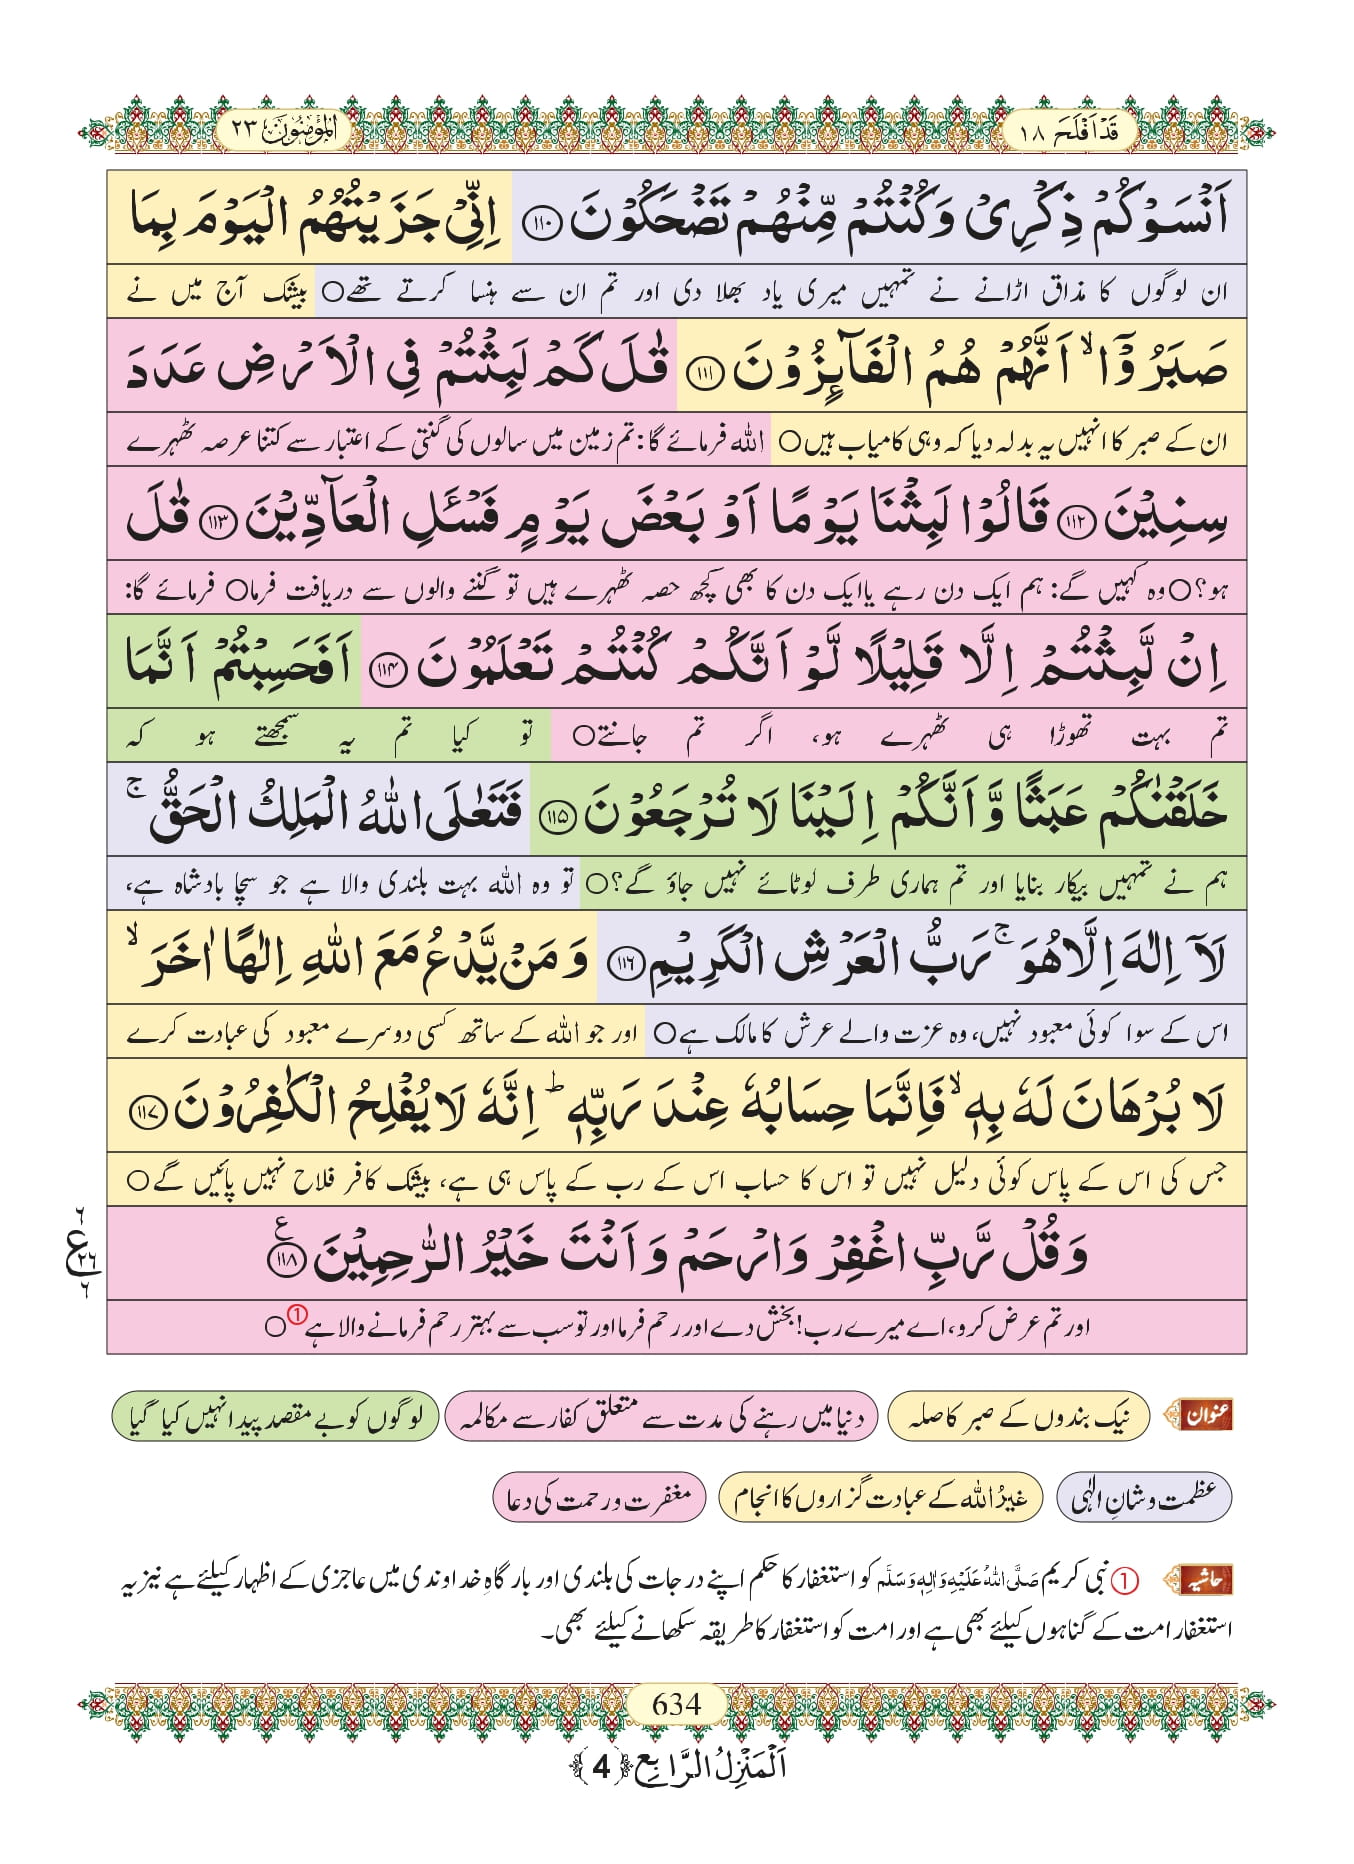 قَدْ اَفْلَحَ ١٨
الْمُؤْمِنُوْنَ ٢٣
اَنْسَوْكُمْ ذِكْرِیْ وَ كُنْتُمْ مِّنْهُمْ تَضْحَكُوْنَ ﴿۱۱۰﴾ اِنِّیْ جَزَیْتُهُمُ الْیَوْمَ بِمَا
ان لوگوں کا مذاق اڑانے نے تمہیں میری یاد بھلا دی اور تم ان سے ہنسا کرتے تھے○ بیشک آج میں نے
صَبَرُوْۤاۙ اَنَّهُمْ هُمُ الْفَآىٕزُوْنَ ﴿۱۱۱﴾ قٰلَ كَمْ لَبِثْتُمْ فِی الْاَرْضِ عَدَدَ
ان کے صبر کا انہیں یہ بدلہ دیا کہ وہی کامیاب ہیں○ اللہ فرمائے گا: تم زمین میں سالوں کی گنتی کے اعتبار سے کتنا عرصہ ٹھہرے
سِنِیْنَ ﴿۱۱۲﴾ قَالُوْا لَبِثْنَا یَوْمًا اَوْ بَعْضَ یَوْمٍ فَسْــٴَـلِ الْعَآدِّیْنَ ﴿۱۱۳﴾ قٰلَ
ہو؟○ وہ کہیں گے: ہم ایک دن رہے یا ایک دن کا بھی کچھ حصہ ٹھہرے ہیں تو گننے والوں سے دریافت فرما○ فرمائے گا:
اِنْ لَّبِثْتُمْ اِلَّا قَلِیْلًا لَّوْ اَنَّكُمْ كُنْتُمْ تَعْلَمُوْنَ ﴿۱۱۴﴾ اَفَحَسِبْتُمْ اَنَّمَا
تم بہت تھوڑا ہی ٹھہرے ہو، اگر تم جانتے○ تو کیا تم یہ سمجھتے ہو کہ
خَلَقْنٰكُمْ عَبَثًا وَّ اَنَّكُمْ اِلَیْنَا لَا تُرْجَعُوْنَ ﴿۱۱۵﴾ فَتَعٰلَى اللّٰهُ الْمَلِكُ الْحَقُّۚ
ہم نے تمہیں بیکار بنایا اور تم ہماری طرف لوٹائے نہیں جاؤ گے؟○ تو وہ اللہ بہت بلندی والا ہے جو سچا بادشاہ ہے،
لَاۤ اِلٰهَ اِلَّا هُوَۚ رَبُّ الْعَرْشِ الْكَرِیْمِ ﴿۱۱۶﴾ وَ مَنْ یَّدْعُ مَعَ اللّٰهِ اِلٰهًا اٰخَرَۙ
اس کے سوا کوئی معبود نہیں، وہ عزت والے عرش کا مالک ہے○ اور جو اللہ کے ساتھ کسی دوسرے معبود کی عبادت کرے
لَا بُرْهَانَ لَهٗ بِهٖۙ فَاِنَّمَا حِسَابُهٗ عِنْدَ رَبِّهٖؕ اِنَّهٗ لَا یُفْلِحُ الْكٰفِرُوْنَ ﴿۱۱۷﴾
جس کی اس کے پاس کوئی دلیل نہیں تو اس کا حساب اس کے رب کے پاس ہی ہے، بیشک کافر فلاح نہیں پائیں گے○
وَ قُلْ رَّبِّ اغْفِرْ وَ ارْحَمْ وَ اَنْتَ خَیْرُ الرّٰحِمِیْنَ ﴿۱۱۸﴾ ع
٦ ع ٢٦ ٦
اور تم عرض کرو، اے میرے رب! بخش دے اور رحم فرما اور تو سب سے بہتر رحم فرمانے والا ہے①○
عنوان نیک بندوں کے صبر کا صلہ دنیا میں رہنے کی مدت سے متعلق کفار سے مکالمہ لوگوں کو بے مقصد پیدا نہیں کیا گیا
عظمت و شانِ الٰہی غیرُ اللہ کے عبادت گزاروں کا انجام مغفرت و رحمت کی دعا
حاشیہ ① نبی کریم صَلَّی اللہُ عَلَیْہِ وَاٰلِہٖ وَسَلَّم کو استغفار کا حکم اپنے درجات کی بلندی اور بارگاہِ خداوندی میں عاجزی کے اظہار کیلئے ہے نیز یہ
استغفار امت کے گناہوں کیلئے بھی ہے اور امت کو استغفار کا طریقہ سکھانے کیلئے بھی۔
634
اَلْمَنْزِلُ الرَّابِع ﴿4﴾